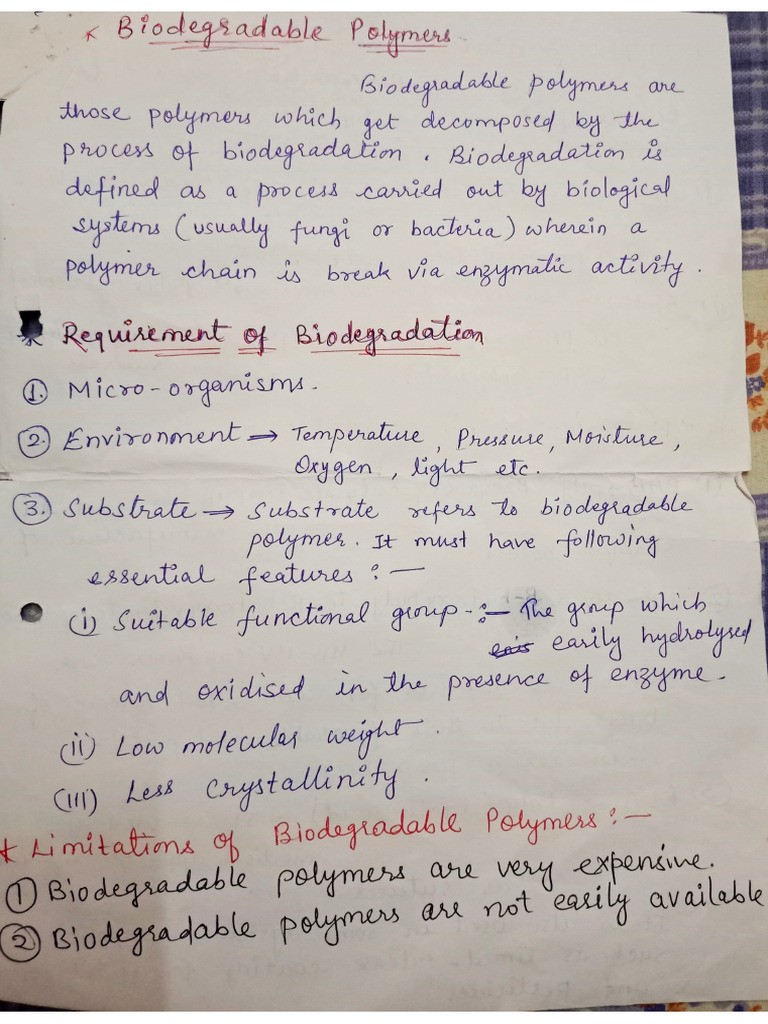 * Biodegradable Polymers
Biodegradable polymers are
those polymers which get decomposed by the
process of biodegradation. Biodegradation is
defined as a process carried out by biological
systems (usually fungi or bacteria) wherein a
polymer chain is break via enzymatic activity.
* Requirement of Biodegradation
1. Micro-organisms.
2. Environment → Temperature, Pressure, Moisture,
Oxygen, light etc.
3. Substrate → Substrate refers to biodegradable
polymer. It must have following
essential features :—
(i) Suitable functional group -:— The group which
easily hydrolysed
and oxidised in the presence of enzyme.
(ii) Low molecular weight.
(iii) Less crystallinity.
* Limitations of Biodegradable Polymers :—
1 Biodegradable polymers are very expensive.
2. Biodegradable polymers are not easily available